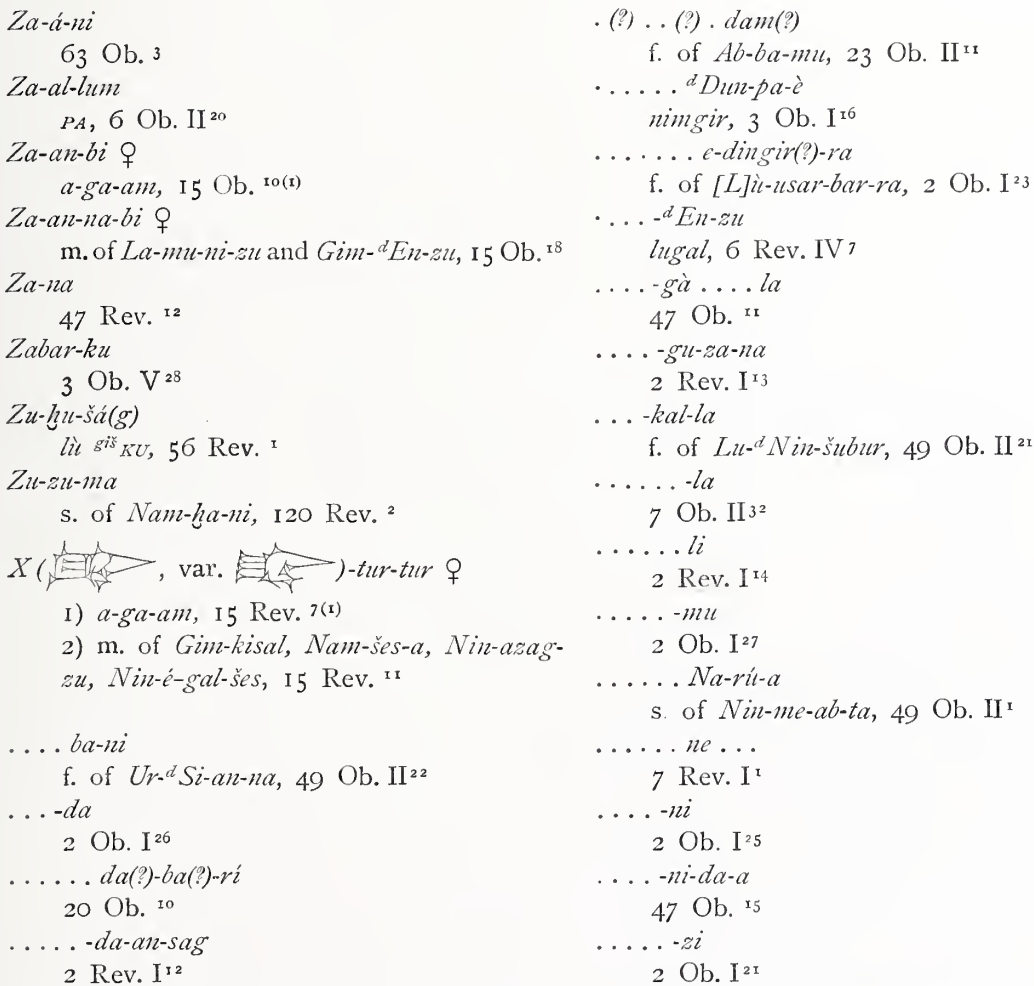 Za-á-ni
63 Ob. ³
Za-al-lum
PA, 6 Ob. II²⁰
Za-an-bi ♀
a-ga-am, 15 Ob. ¹⁰⁽¹⁾
Za-an-na-bi ♀
m. of La-mu-ni-zu and Gim-ᵈEn-zu, 15 Ob. ¹⁸
Za-na
47 Rev. ¹²
Zabar-ku
3 Ob. V²⁸
Zu-ḫu-šá(g)
lù ᵍⁱˢ KU, 56 Rev. ¹
Zu-zu-ma
s. of Nam-ḫa-ni, 120 Rev. ²
X ( , var. )-tur-tur ♀
1) a-ga-am, 15 Rev. ⁷⁽¹⁾
2) m. of Gim-kisal, Nam-šes-a, Nin-azag-
zu, Nin-é-gal-šes, 15 Rev. ¹¹
. . . . ba-ni
f. of Ur-ᵈSi-an-na, 49 Ob. II²²
. . . -da
2 Ob. I²⁶
. . . . . . da(?)-ba(?)-rí
20 Ob. ¹⁰
. . . . . -da-an-sag
2 Rev. I¹²
. (?) . . (?) . dam(?)
f. of Ab-ba-mu, 23 Ob. II¹¹
. . . . . . ᵈDun-pa-è
nimgir, 3 Ob. I¹⁶
. . . . . . . e-dingir(?)-ra
f. of [L]ù-usar-bar-ra, 2 Ob. I²³
. . . . -ᵈEn-zu
lugal, 6 Rev. IV⁷
. . . . -gà . . . . la
47 Ob. ¹¹
. . . . -gu-za-na
2 Rev. I¹³
. . . -kal-la
f. of Lu-ᵈNin-šubur, 49 Ob. II²¹
. . . . . . -la
7 Ob. II³²
. . . . . . li
2 Rev. I¹⁴
. . . . . -mu
2 Ob. I²⁷
. . . . . . Na-rú-a
s. of Nin-me-ab-ta, 49 Ob. II¹
. . . . . . ne . . .
7 Rev. I¹
. . . . -ni
2 Ob. I²⁵
. . . . -ni-da-a
47 Ob. ¹⁵
. . . . . -zi
2 Ob. I²¹